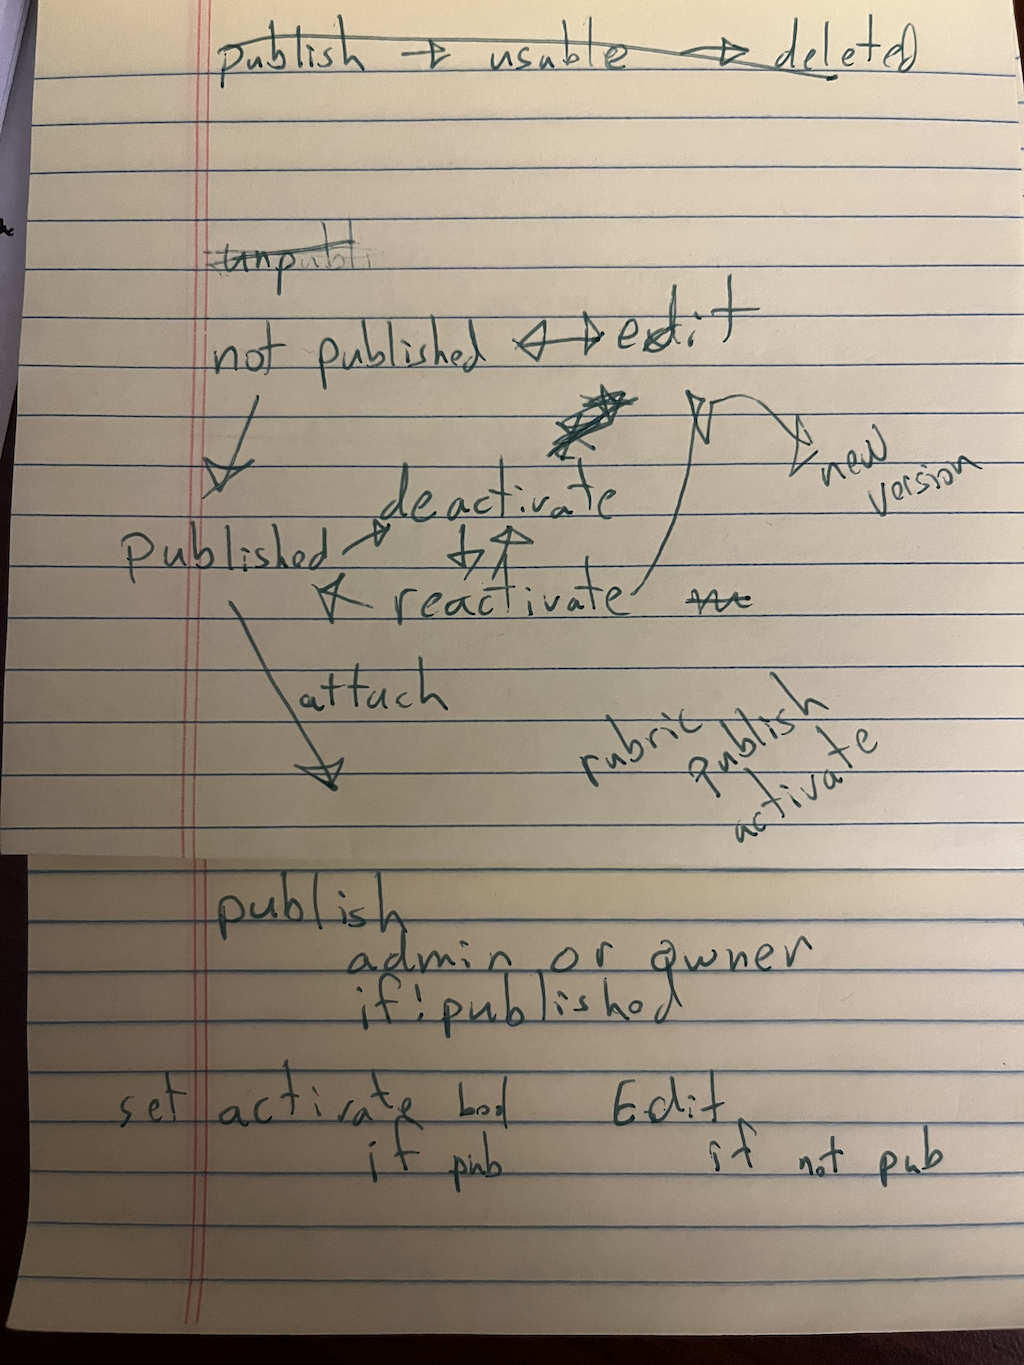 publish → usable → deleted
unpubli
not published ↔ edit
new
version
deactivate
Published
reactivate
attach
rubric
publish
activate
publish
admin or owner
if !published
set activate bool Edit
if pub if not pub